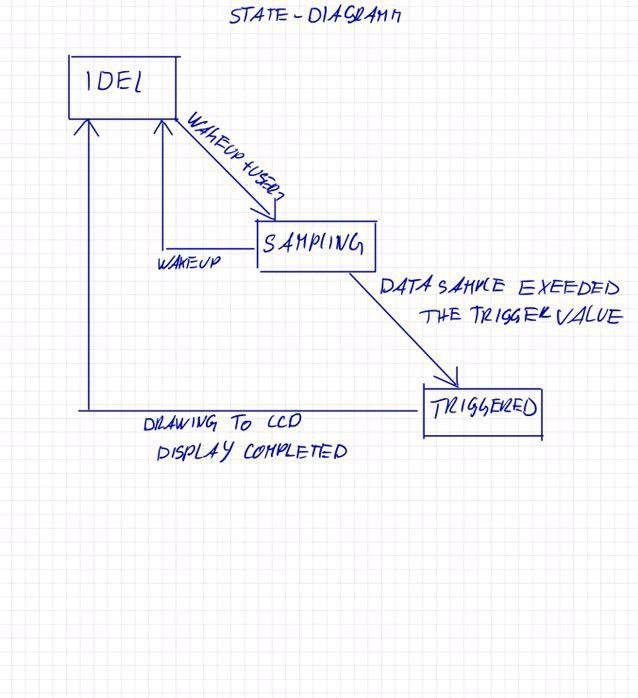 STATE-DIAGRAMM
IDEL
WAKEUP + USER?
SAMPLING
WAKEUP
DATA SAMPLE EXEEDED
THE TRIGGER VALUE
TRIGGERED
DRAWING TO LCD
DISPLAY COMPLETED